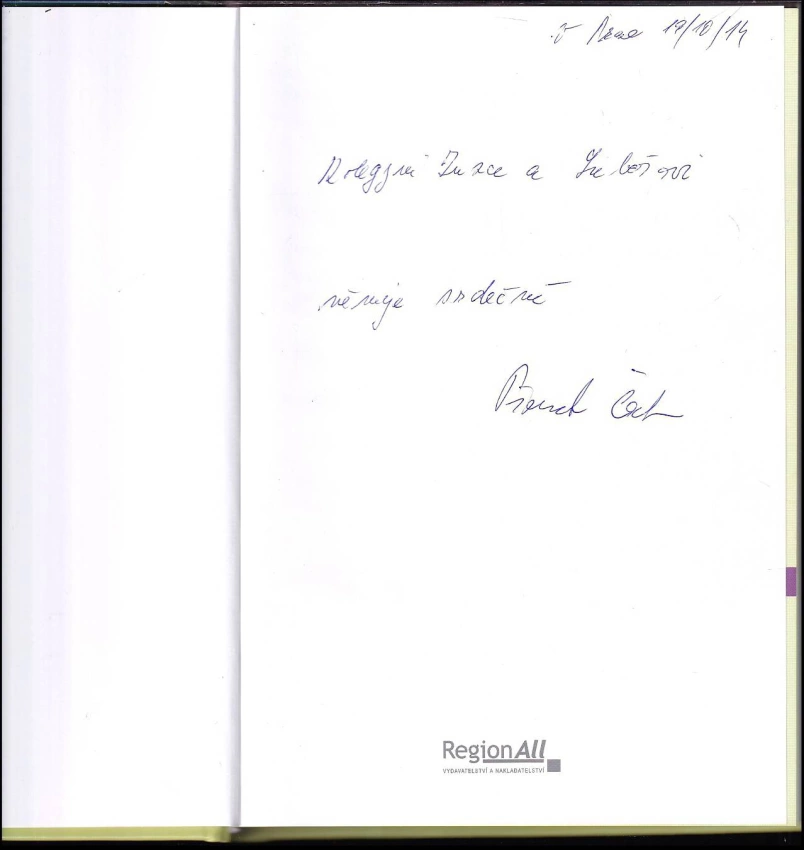 v Praze 17/10/14
Kolegyni Zuzce a Lubošovi
věnuje srdečně
RegionAll
VYDAVATELSTVÍ A NAKLADATELSTVÍ